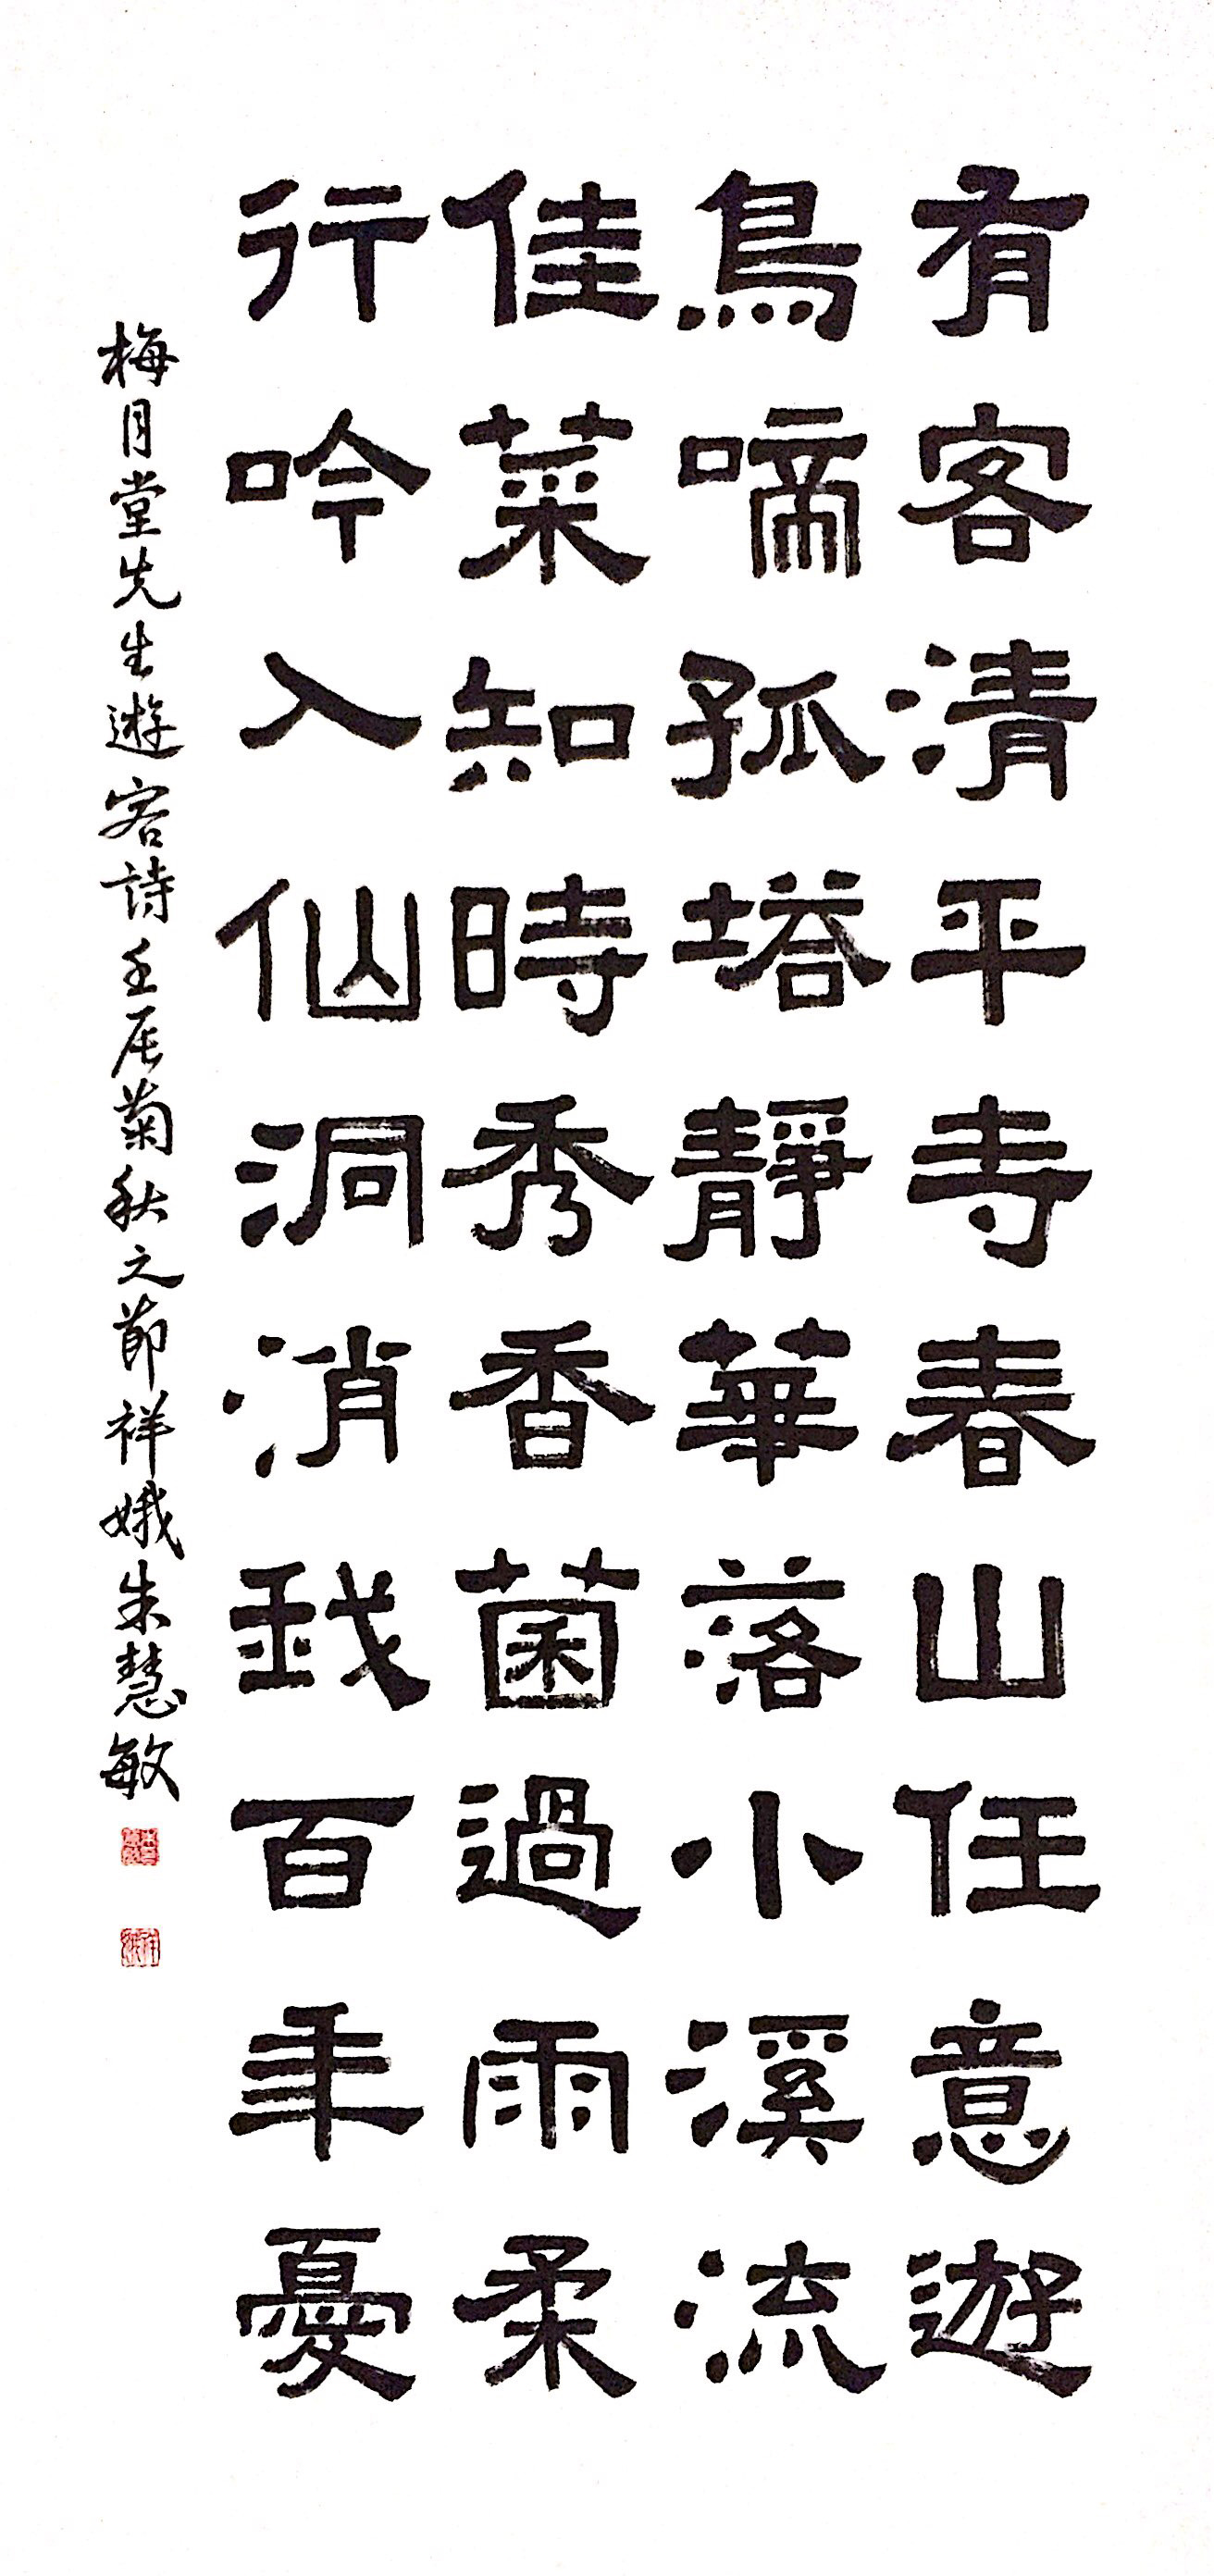 有客清平寺春山任意遊
鳥啼孤塔靜華落小溪流
佳菜知時秀香菌過雨柔
行吟入仙洞消我百年憂
梅月堂先生遊客詩壬辰菊秋之節祥娥朱慧敏